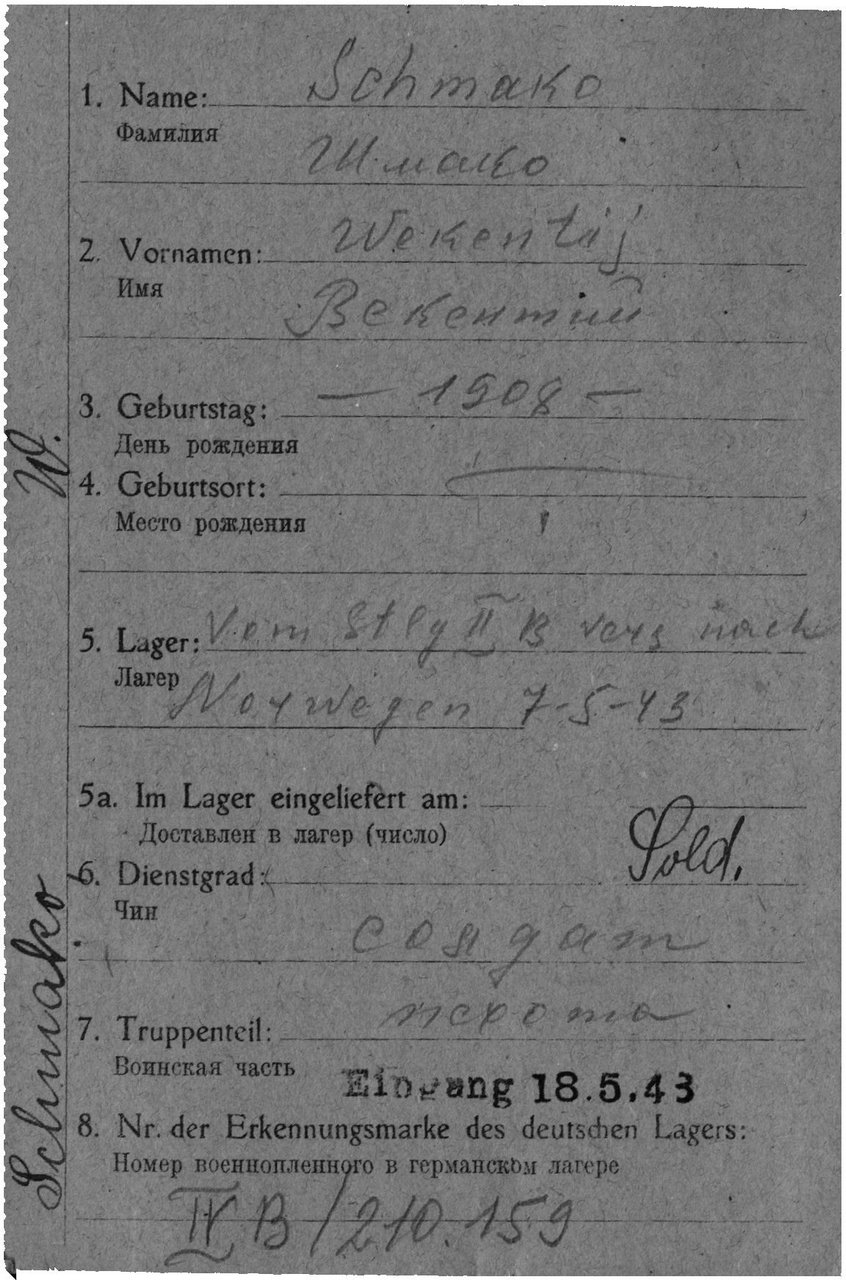 1. Name: Schmako
Фамилия
Шмако
2. Vornamen: Wekentij
Имя
Векентий
3. Geburtstag: — 1908 —
День рождения
4. Geburtsort:
Место рождения
5. Lager: Vom Stlg II B vers nach
Лагер
Norwegen 7-5-43
5a. Im Lager eingeliefert am:
Доставлен в лагер (число)
Sold.
6. Dienstgrad:
Чин
солдат
7. Truppenteil: пехота
Воинская часть
Eingang 18.5.43
8. Nr. der Erkennungsmarke des deutschen Lagers:
Номер военнопленного в германском лагере
IV B/210.159
Schmako W.